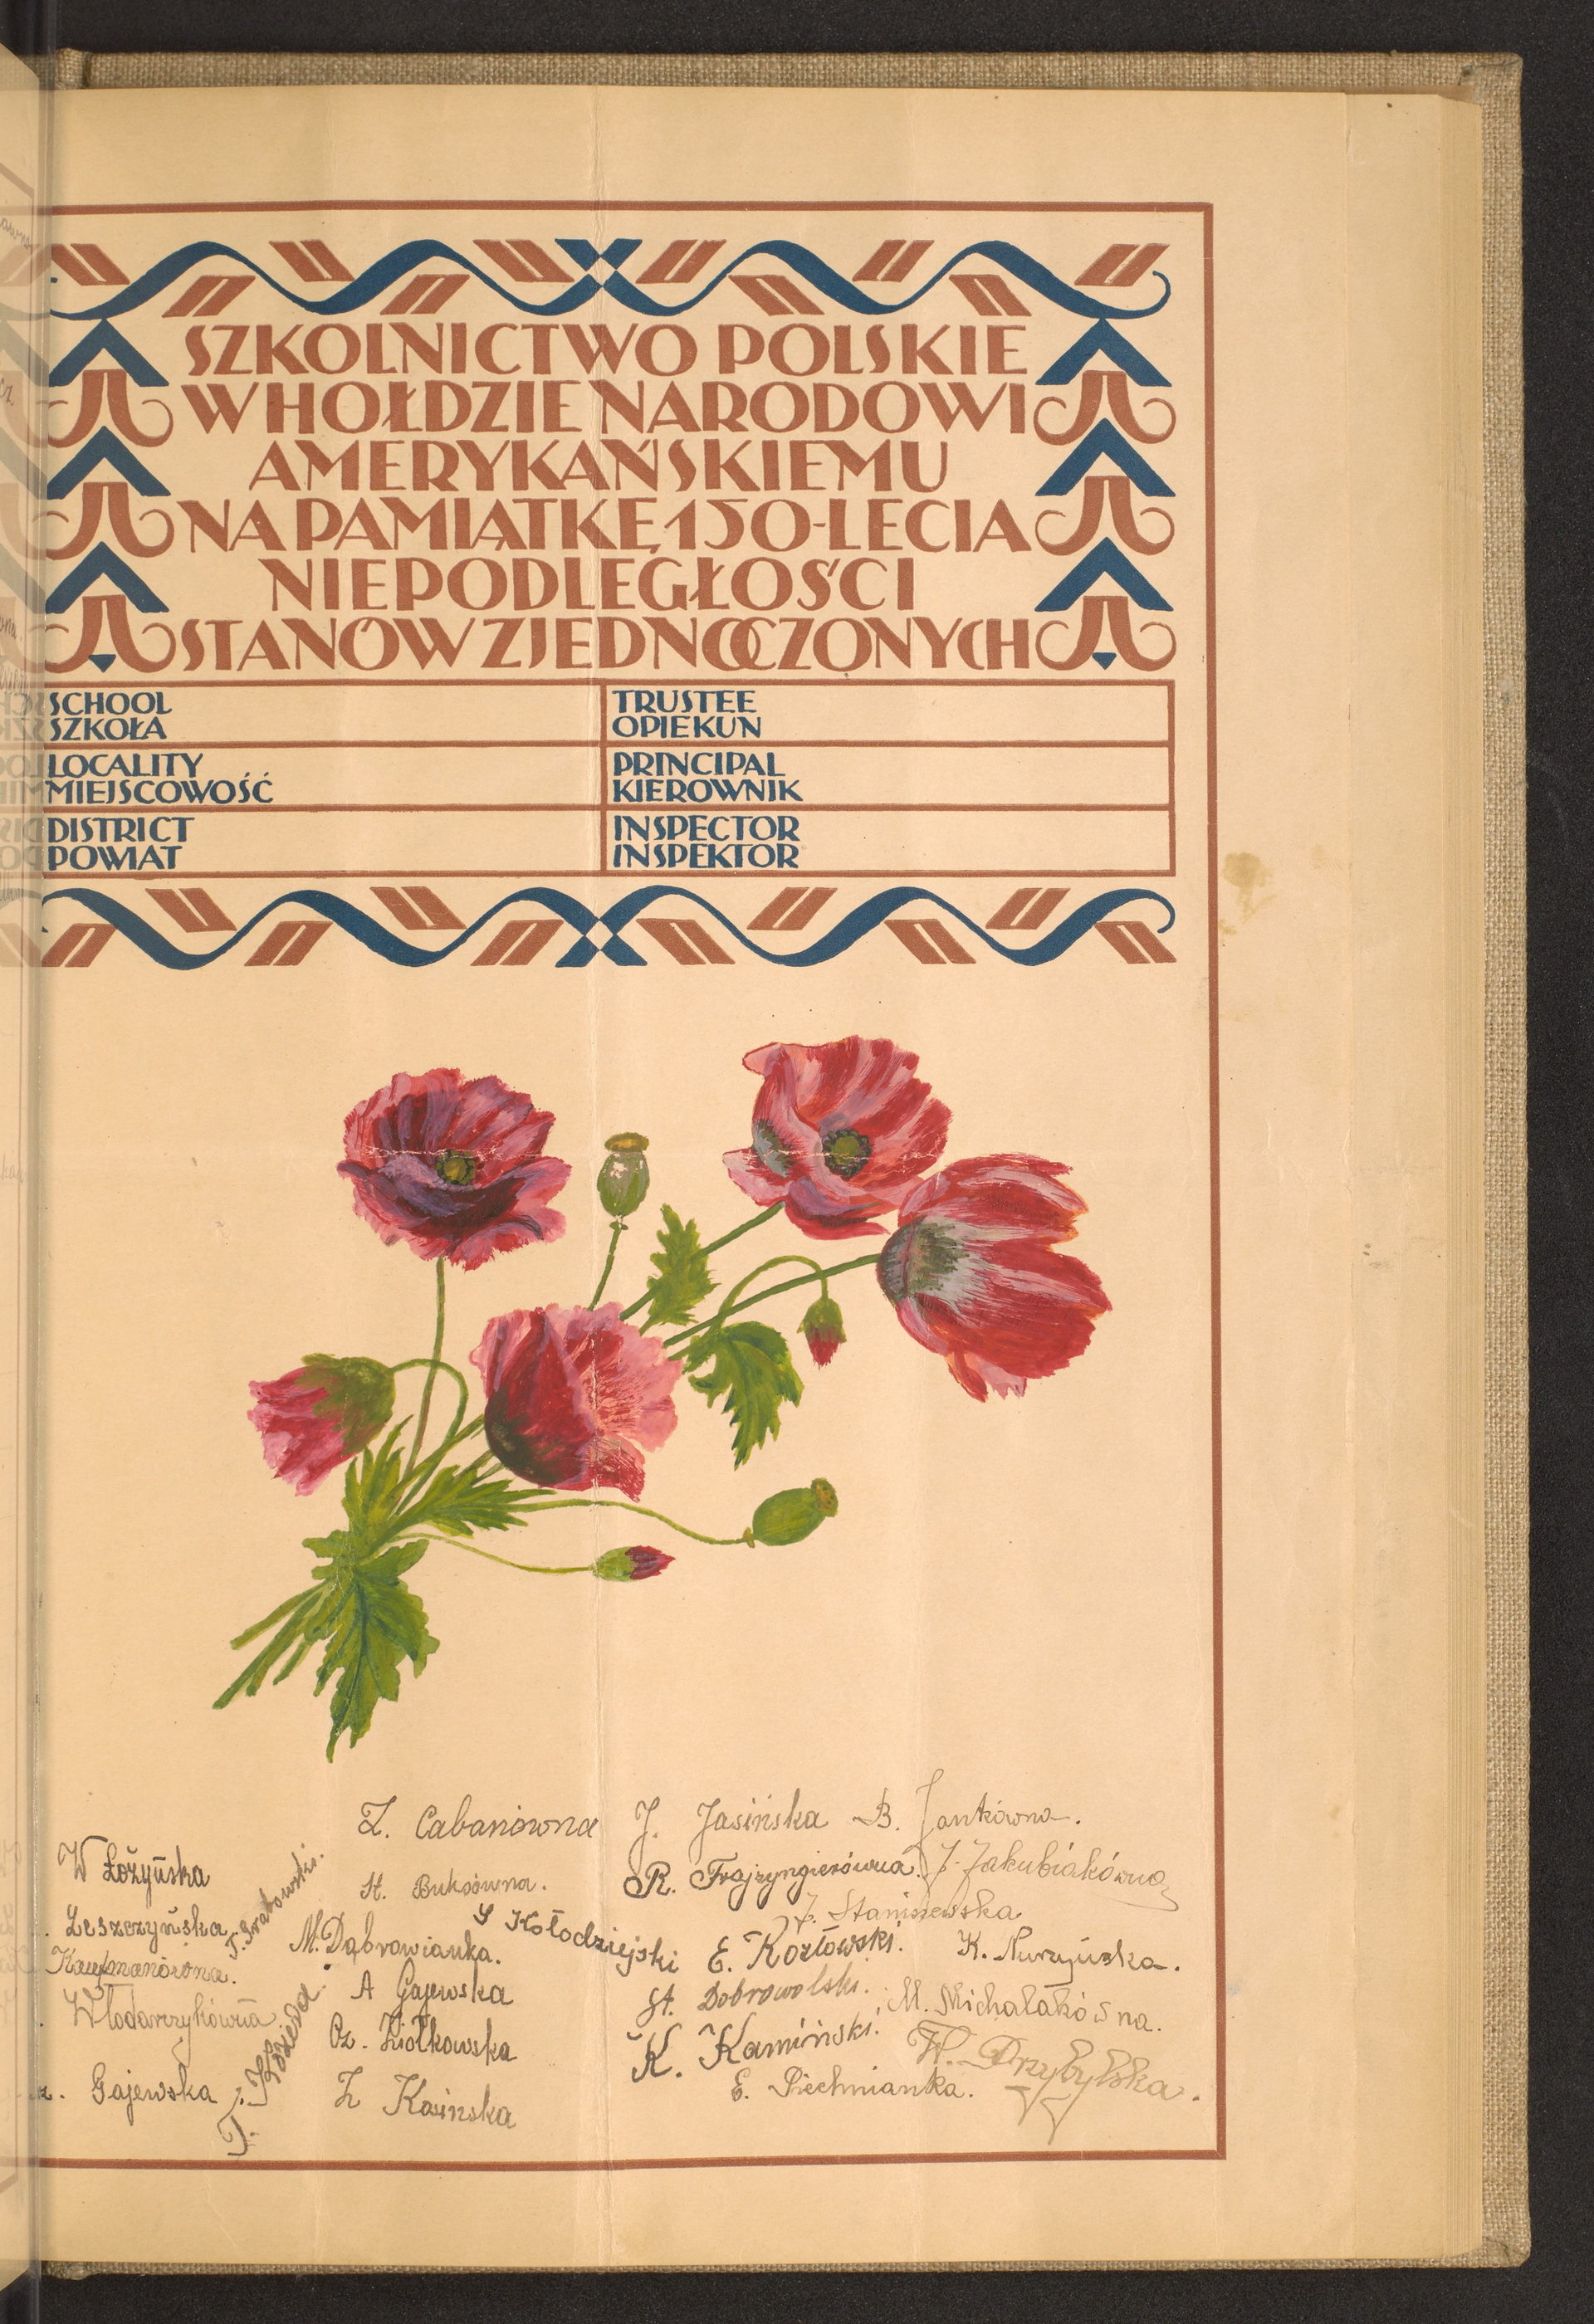 SZKOLNICTWO POLSKIE
W HOŁDZIE NARODOWI
AMERYKAŃSKIEMU
NA PAMIĄTKĘ 150-LECIA
NIEPODLEGŁOŚCI
STANÓW ZJEDNOCZONYCH
SCHOOL
SZKOŁA
TRUSTEE
OPIEKUN
LOCALITY
MIEJSCOWOŚĆ
PRINCIPAL
KIEROWNIK
DISTRICT
POWIAT
INSPECTOR
INSPEKTOR
Z. Cabanówna
J. Jasińska
B. Jankówna.
W Łożyńska
St. Buksówna.
R. Frajzyngierówna.
J. Jakubiakówna
J. Staniszewska
Leszczyńska
T. Grabowski.
M. Dąbrowianka.
S Kołodziejski
E. Kozłowski.
K. Nurzyńska.
Kaufmanówna.
A Gajewska
St. Dobrowolski.
M. Michalakówna.
Włodarczykówna
Cz. Ziółkowska
K. Kamiński.
W. Przybylska.
Gajewska
Z Kasińska
E. Piechnianka.